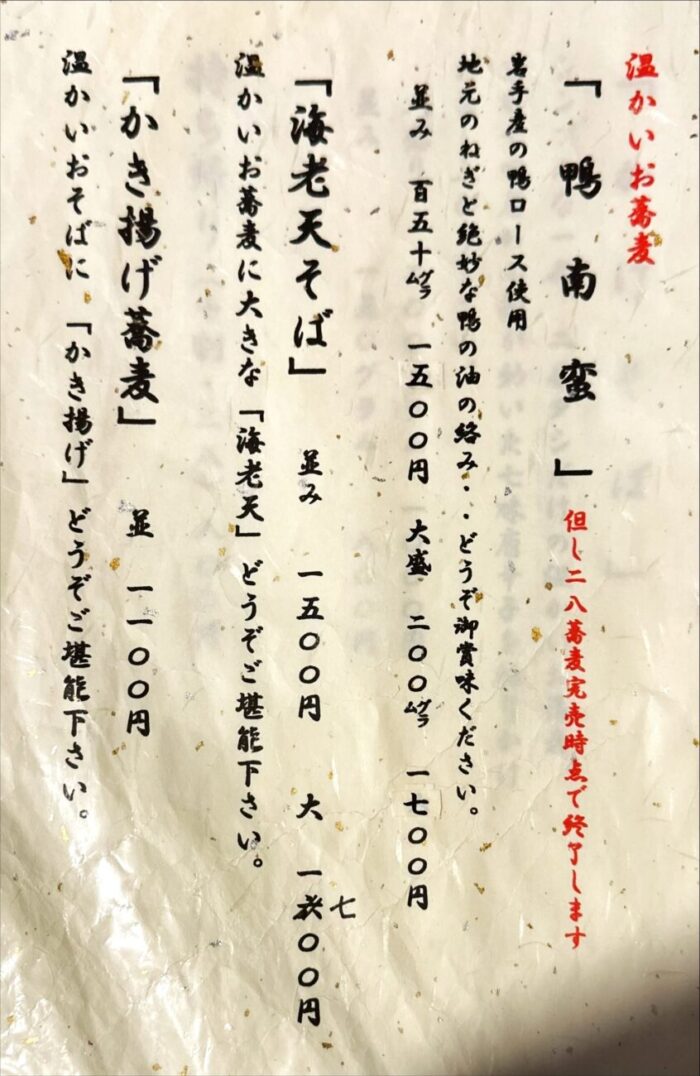 温かいお蕎麦
「鴨南蛮」 但し二八蕎麦完売時点で終了します
岩手産の鴨ロース使用
地元のねぎと絶妙な鴨の油の絡み・・どうぞ御賞味ください。
並み 百五十グラム 一五〇〇円 大盛 二〇〇グラム 一七〇〇円
「海老天そば」 並み 一五〇〇円 大 一七〇〇円
温かいお蕎麦に大きな「海老天」どうぞご堪能下さい。
「かき揚げ蕎麦」 並 一一〇〇円
温かいおそばに「かき揚げ」どうぞご堪能下さい。